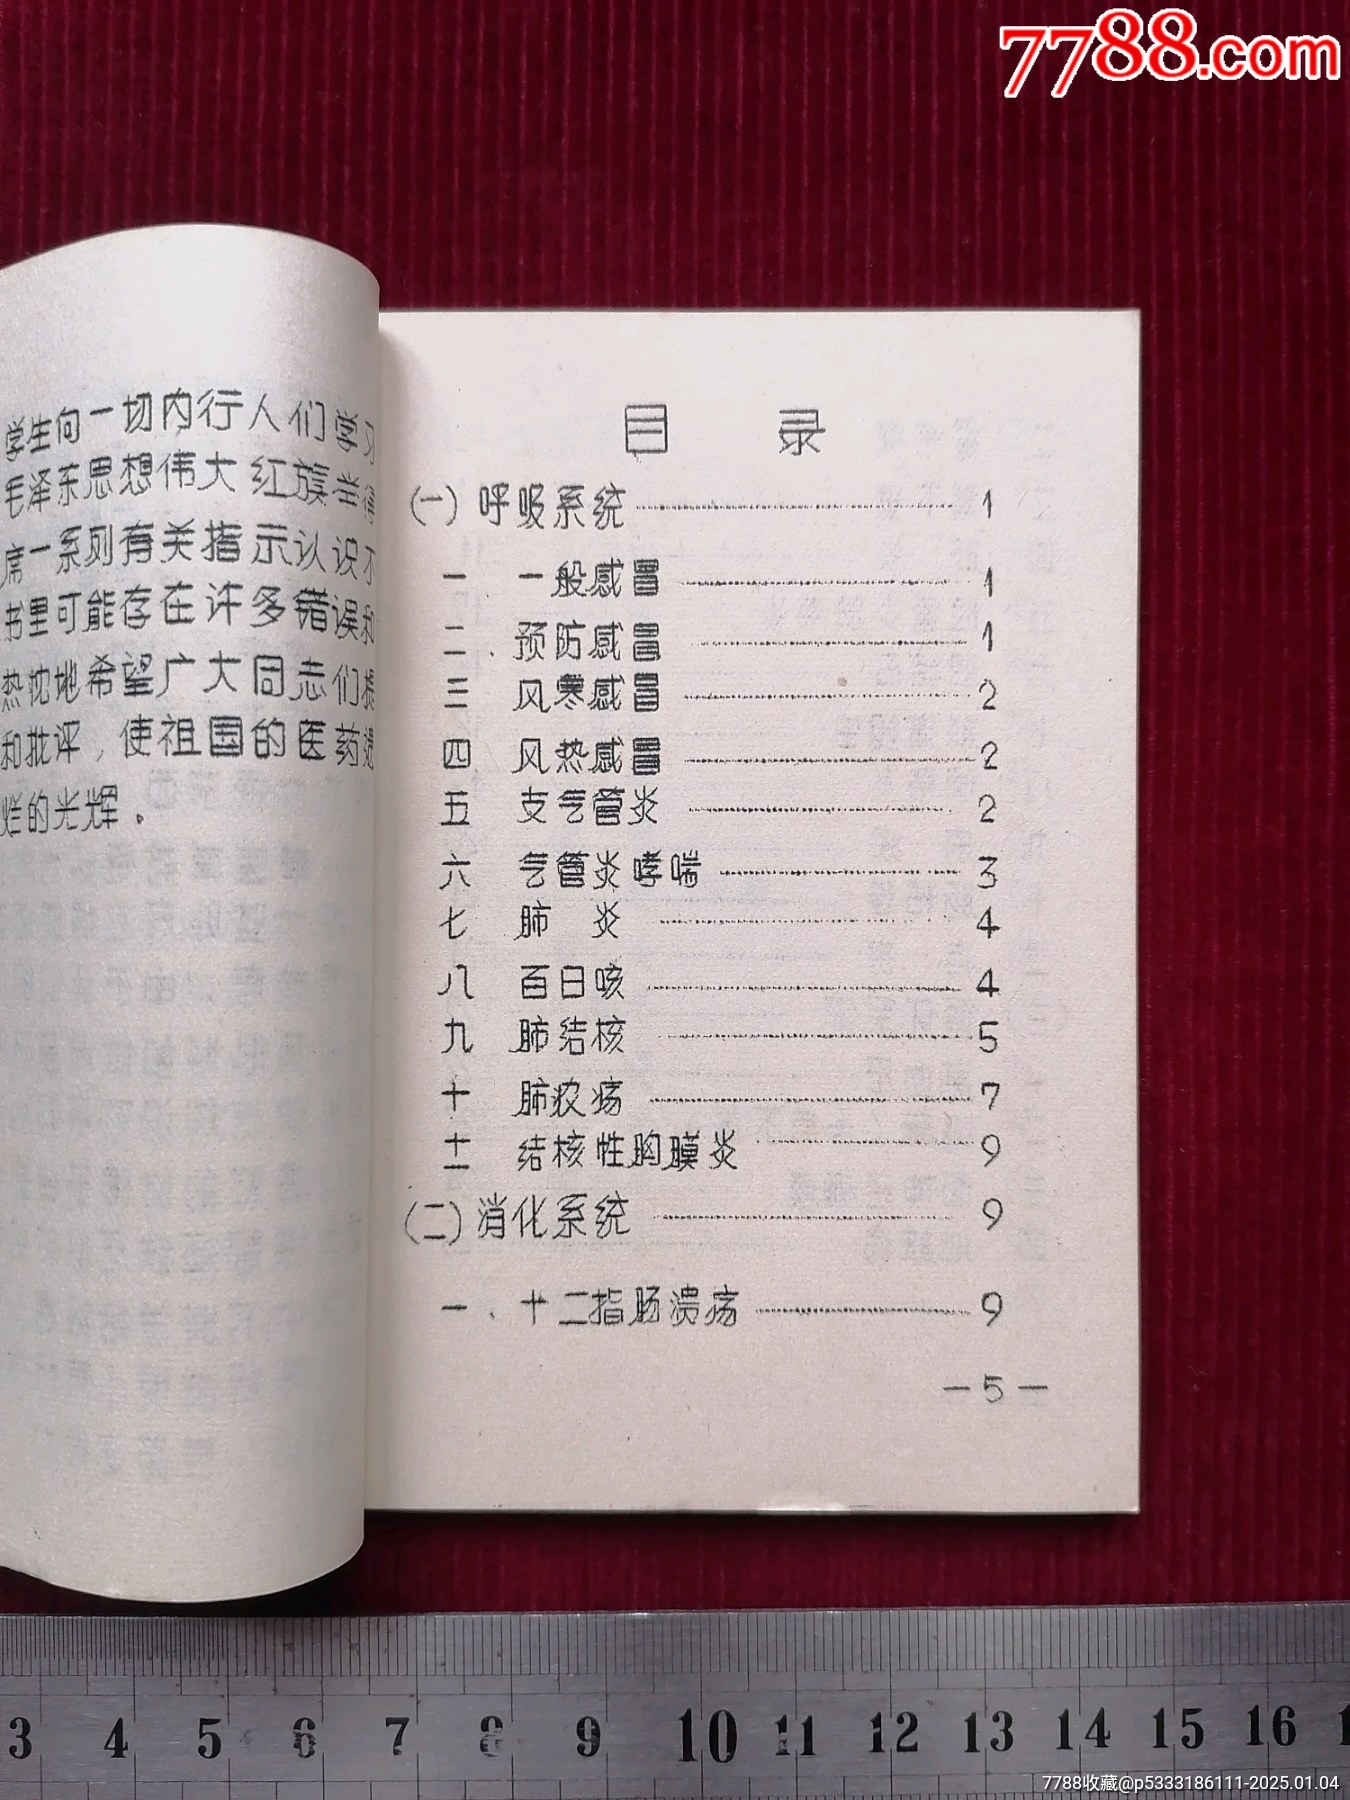 7788.com
学生向一切内行人们学习
毛泽东思想伟大红旗举得
席一系列有关指示认识不
书里可能存在许多错误和
热忱地希望广大同志们提
和批评，使祖国的医药
烂的光辉。
目 录
(一)呼吸系统 1
一 一般感冒 1
二．预防感冒 1
三 风寒感冒 2
四 风热感冒 2
五 支气管炎 2
六 气管炎哮喘 3
七 肺 炎 4
八 百日咳 4
九 肺结核 5
十 肺疡 7
十一 结核性胸膜炎 9
(二)消化系统 9
一．十二指肠溃疡 9
—5—
3 4 5 6 7 8 9 10 11 12 13 14 15 16
7788收藏@p5333186111-2025.01.04